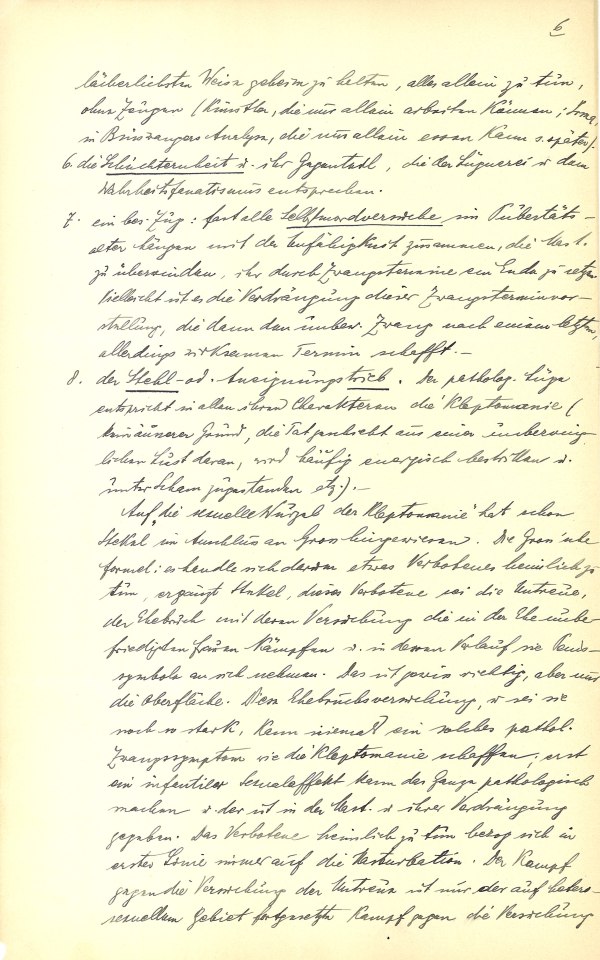 6
lächerlichsten Weise geheim zu halten, alles allein zu tun,
ohne Zeugen (Künstler, die nur allein arbeiten können; Irma,
in Binswangers Analyse, die nur allein essen kann s. später).
6. die Schüchternheit u. ihr Gegenteil, die der Lügnerei u dem
Wahrheitsfanatismus entsprechen.
7. ein bes. Zug: fast alle Selbstmordversuche im Pubertäts-
alter hängen mit der Unfähigkeit zusammen, die Mast.
zu überwinden, ihr durch Zwangstermine ein Ende zu setzen.
Vielleicht ist es die Verdrängung dieser Zwangsterminvor-
stellung, die dann den unbew. Zwang nach einem letzten,
allerdings wirksamen Termin schafft.-
8. der Stehl- od. Aneignungstrieb. Der patholog. Lüge
entspricht in allen ihren Charakteren die Kleptomanie (
kein äusserer Grund, die Tat geschieht aus einer unbezwing-
lichen Lust daran, wird häufig energisch bestritten u.
unter Scham zugestanden etz.).-
Auf „die sexuelle Wurzel der Kleptomanie" hat schon
Stekel im Anschluss an Gross hingewiesen. Die Gross'sche
Formel: es handle sich darum etwas Verbotenes heimlich zu
tun, ergänzt Stekel, dieses Verbotene sei die Untreue,
der Ehebruch mit deren Versuchung die in der Ehe unbe-
friedigten Frauen kämpfen u. in deren Verlauf sie Penis-
symbole an sich nehmen. Das ist gewiss richtig, aber nur
die Oberfläche. Diese Ehebruchsversuchung, u sei sie
noch so stark, kann niemals ein solches pathol.
Zwangssymptom wie die Kleptomanie schaffen; erst
ein infantiler Sexualaffekt kann das Ganze pathologisch
machen u der ist in der Mast. u ihrer Verdrängung
gegeben. Das Verbotene heimlich zu tun bezog sich in
erster Linie immer auf die Masturbation. Der Kampf
gegen die Versuchung der Untreue ist nur der auf hetero-
sexuellem Gebiet fortgesetzte Kampf gegen die Versuchung